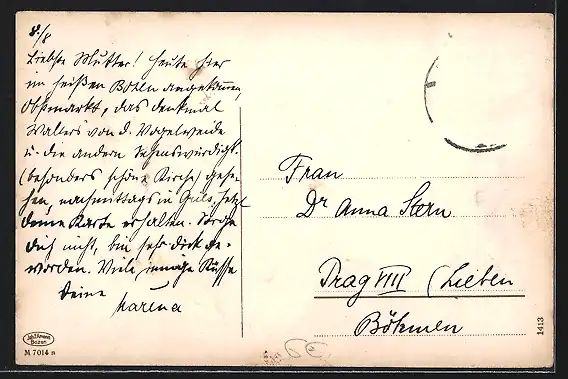 8./8
Liebste Mutter! Heute hier
im heißen Bozen angekommen,
Obstmarkt, das Denkmal
Walters von d. Vogelweide
u. die andern Sehenswürdigk.
(besonders schöne Kirche) gese-
hen, nachmittags in Gries. Jetzt
deine Karte erhalten. Sorge
dich nicht, bin sehr dick ge-
worden. Viele innige Küsse
Deine
Frau
Dr Anna Stern
Prag VIII (Lieben
Böhmen
1413
Bozen
M 7014 n